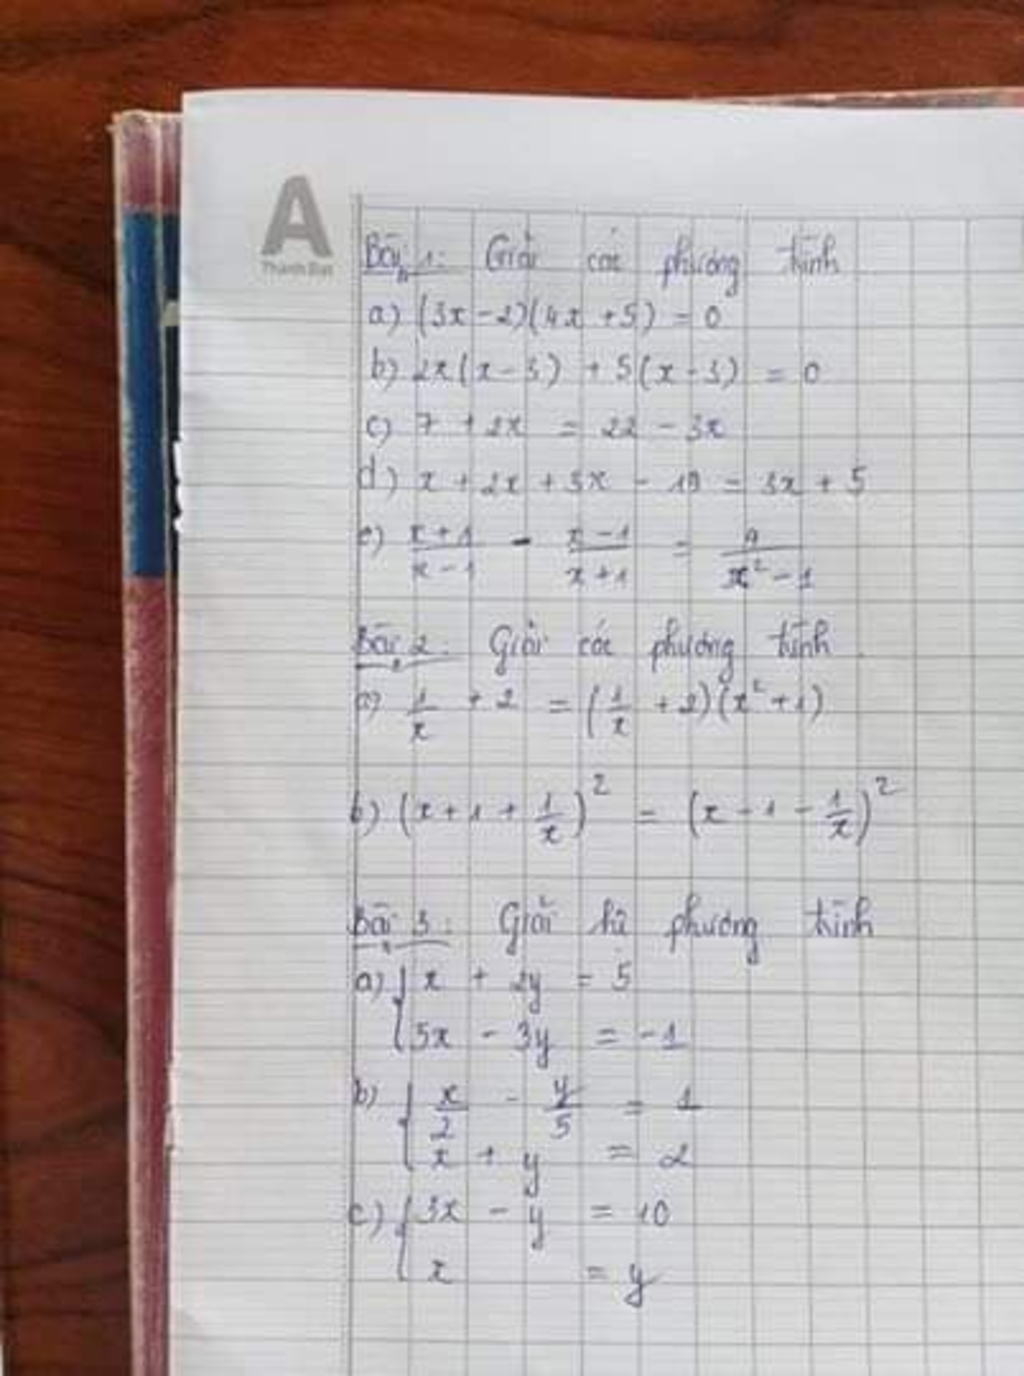 A
Thành Đạt
Bài 1: Giải các phương trình
a) (3x - 2)(4x + 5) = 0
b) 2x(x - 3) + 5(x - 3) = 0
c) 7 + 2x = 22 - 3x
d) x + 2x + 3x - 19 = 3x + 5
e) \frac{x+1}{x-1} - \frac{x-1}{x+1} = \frac{}{x² - 1}
Bài 2: Giải các phương trình
a) \frac{1}{x} + 2 = (\frac{1}{x} + 2)(x² + 1)
b) (x + 1 + \frac{1}{x})² = (x - 1 - \frac{1}{x})²
Bài 3: Giải hệ phương trình
a) { x + 2y = 5
5x - 3y = -1
b) { \frac{x}{2} - \frac{y}{5} = 1
x + y = 2
c) { 3x - y = 10
x = y